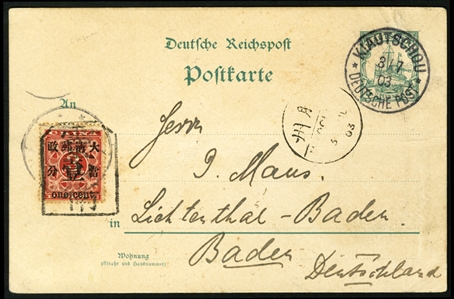 Deutsche Reichspost
Postkarte
KIAUTSCHOU
3/7
03
DEUTSCHE POST
An
Herrn
J. Maus.
大清郵政
壹
暫
分
one cent.
in Lichtenthal-Baden.
Baden
Wohnung
(Straße und Hausnummer)
Deutschland